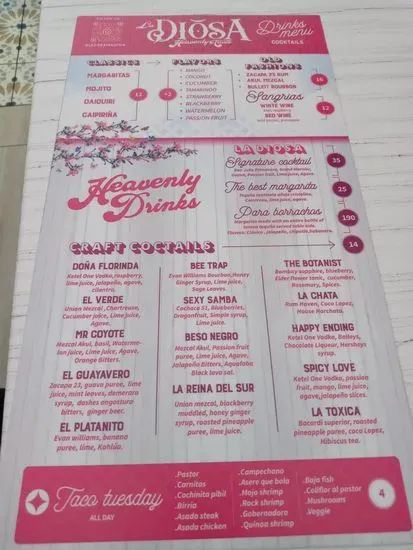 La
DIOSA
Heavenly
Drinks
menu
COCKTAILS
CLASSICS
MARGARITAS
MOJITO
DAIQUIRI
CAIPIRIÑA
12
+2
FLAVORS
• MANGO
• COCONUT
• CUCUMBER
• TAMARINDO
• STRAWBERRY
• BLACKBERRY
• WATERMELON
• PASSION FRUIT
OLD
FASHIONS
ZACAPA 23 RUM
AKUL MEZCAL
BULLEIT BOURBON
16
Sangrias
WHITE WINE
RED WINE
12
Heavenly
Drinks
LA DIOSA
Signature cocktail
Don Julio Primavera, Grand Marnier,
Guava, Passion fruit, Lime juice, Agave.
35
The best margarita
Cointreau, lime juice, agave.
25
Para borrachos
Margarita made with an entire bottle of
Flavors: Clásica, jalapeño, chipotle, habanero.
190
CRAFT COCTAILS
14
DOÑA FLORINDA
Ketel One Vodka, raspberry,
lime juice, jalapeño, agave,
cilantro.
EL VERDE
Union Mezcal, Chartreuse,
Cucumber juice, Lime juice,
Agave.
MR COYOTE
Mezcal Akul, basil, Waterme-
lon juice, Lime juice, Agave,
Orange Bitters.
EL GUAYAVERO
Zacapa 23, guava puree, lime
juice, mint leaves, demerara
syrup, dashes angostura
bitters, ginger beer.
EL PLATANITO
Evan williams, banana
puree, lime, Kahlúa.
BEE TRAP
Evan Williams Bourbon, Honey
Ginger Syrup, Lime juice,
Sage Leaves.
SEXY SAMBA
Cachaca 51, Blueberries,
Dragonfruit, Simple syrup,
Lime juice.
BESO NEGRO
Mezcal Akul, Passion fruit
puree, Lime juice, Agave,
Jalapeño Bitters, Aquafaba
Black lava sal.
LA REINA DEL SUR
Union mezcal, blackberry
muddled, honey ginger
syrup, roasted pineapple
puree, lime juice.
THE BOTANIST
Bombay sapphire, blueberry,
Elderflower tonic, cucumber,
Rosemary, Spices.
LA CHATA
Rum Haven, Coco Lopez,
House Horchata.
HAPPY ENDING
Ketel One Vodka, Baileys,
Chocolate Liqueur, Hersheys
syrup.
SPICY LOVE
Ketel One Vodka, passion
fruit, mango, lime juice,
agave, jalapeño slices.
LA TOXICA
Bacardi superior, roasted
pineapple puree, coco Lopez,
Hibiscus tea.
Taco tuesday
ALL DAY
.Pastor
.Carnitas
.Cochinita pibil
.Birria
.Asada steak
.Asada chicken
.Campechano
.Asere que bola
.Mojo shrimp
.Rock shrimp
.Gobernadora
.Quinoa shrimp
.Baja fish
.Coliflor al pastor
.Mushrooms
.Veggie
4